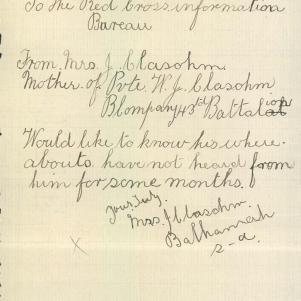 To the Red Cross information
Bureau
From Mrs. J. Clasohm
Mother of Pvte. W. J. Clasohm
B Company 43rd Battalion
Would like to know his where-
abouts have not heard from
him for some months.
Yours Truly.
Mrs. J Clasohm.
S-a.